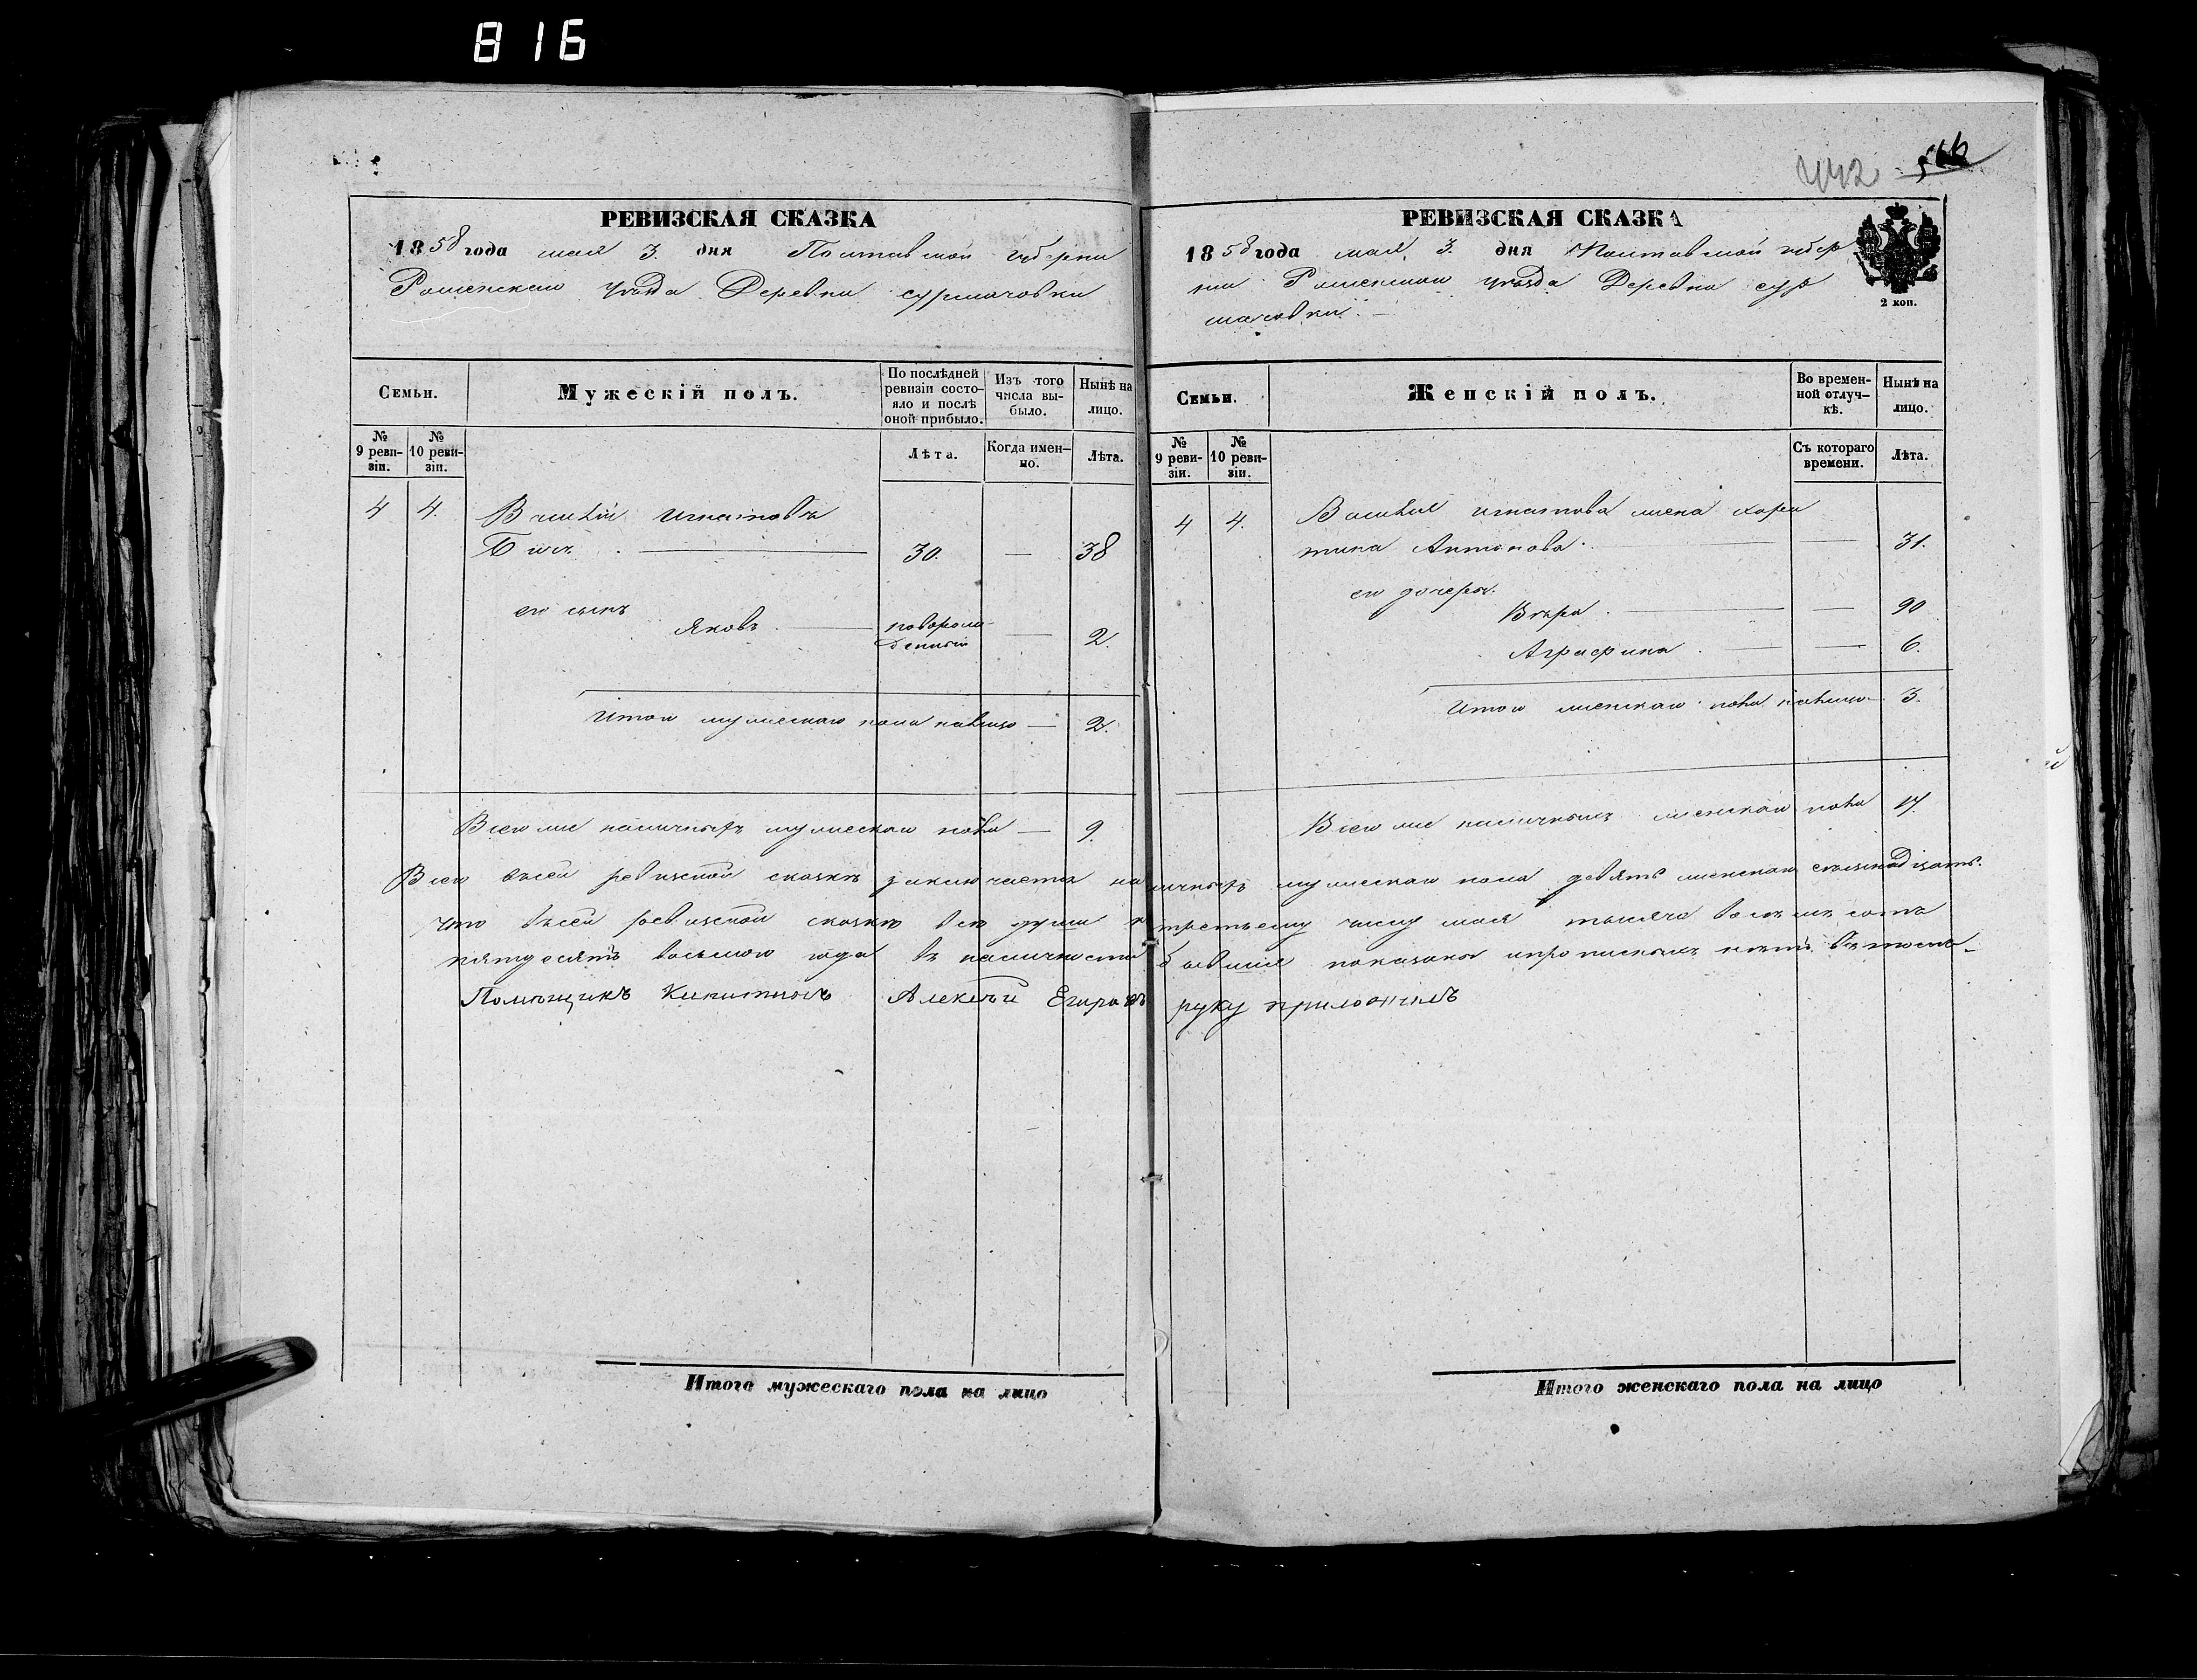 816
442
РЕВИЗСКАЯ СКАЗКА
1858 года мая 3. дня Полтавской губерни
Роменскаго уезда Деревни сурмачовки
Семьи.
Мужескій полъ.
По послѣдней ревизіи состо-
яло и послѣ оной прибыло.
Изъ того числа вы-
было.
Нынѣ на лицо.
№ 9 реви-
зіи.
№ 10 реви-
зіи.
Лѣта.
Когда имен-
но.
Лѣта.
4 4. Василій Игнатовъ
30. — 38
его сынъ
Яковъ. новорож-
денный — 2.
Итого мужескаго пола налицо — 2.
Всего же наличныхъ мужескаго пола — 9.
РЕВИЗСКАЯ СКАЗКА
1858 года мая 3. дня Полтавской губер
нии Роменскаго уезда Деревни сур
мачовки. —
2 коп.
Семьи.
Женскій полъ.
Во времен-
ной отлуч-
кѣ.
Нынѣ на лицо.
№ 9 реви-
зіи.
№ 10 реви-
зіи.
Съ котораго времени.
Лѣта.
4 4. Василія Игнатова жена хари
тина Антонова. — 31.
его дочери.
Вѣра. — 90
Аграфина. — 6.
Итого женскаго пола налицо — 3.
Всего же наличныхъ женскаго пола 17.
Всего въсей ревизской сказкѣ заключается наличныхъ мужескаго пола девять женскаго семнадцать.
Что въсей ревизской сказкѣ все души к третьему числу мая тысяча восемь сотъ
пятдесятъ восьмого года въ наличности бывшия показаны и прописныхъ нѣтъ
Помѣщикъ Алексѣй Егоровъ руку приложилъ
Итого мужескаго пола на лицо
Итого женскаго пола на лицо